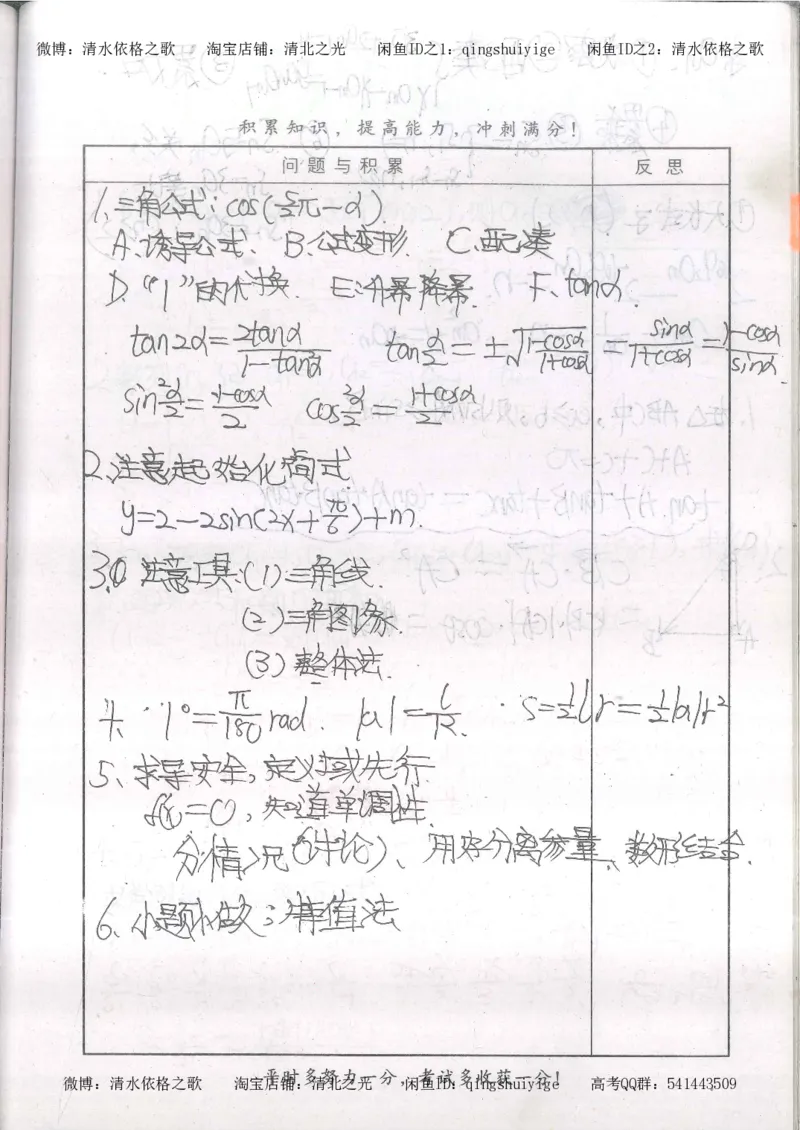 微博：清水依格之歌 淘宝店铺：清北之光 闲鱼ID之1：qingshuiyige 闲鱼ID之2：清水依格之歌
积累知识，提高能力，冲刺满分！
问题与积累 反思
1、三角公式：cos(5/2π-α)
A、诱导公式 B、公式变形. C、配凑
D、“1”的代换. E、升幂降幂. F、tanα.
tan2α=2tanα/(1-tan²α) tanα/2=±√((1-cosα)/(1+cosα)) = sinα/(1+cosα)=(1-cosα)/sinα.
sin²α/2=(1-cosα)/2 cos²α/2=(1+cosα)/2
2、注意起始化简式
y=2-2sin(2x+π/6)+m.
3、① 注意工具：(1)三角线.
(2)三角图象.
(3)整体法.
4、·1°=π/180 rad. |α|=l/R. ·S=½lr=½|α|r²
5、求导安全，定义域先行.
f(x)=0，知道单调性.
分情况（讨论）、用好分离参量、数形结合.
6、小题小做：特值法
平时多努力一分，考试多收获一分！
微博：清水依格之歌 淘宝店铺：清北之光 闲鱼ID：qingshuiyige 高考QQ群：541443509